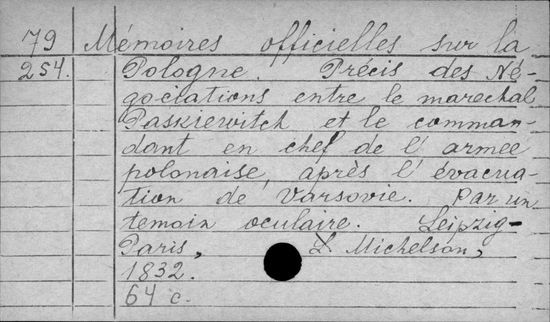 79 Mémoires officielles sur la
254. Pologne. Précis des Né-
gociations entre le marechal
Paskiewitch et le comman-
dant en chef de l'armée
polonaise, après l'évacua-
tion de Varsovie. Par un
temoin oculaire. Leipzig-
Paris, L. Michelson,
1832.
64 c.